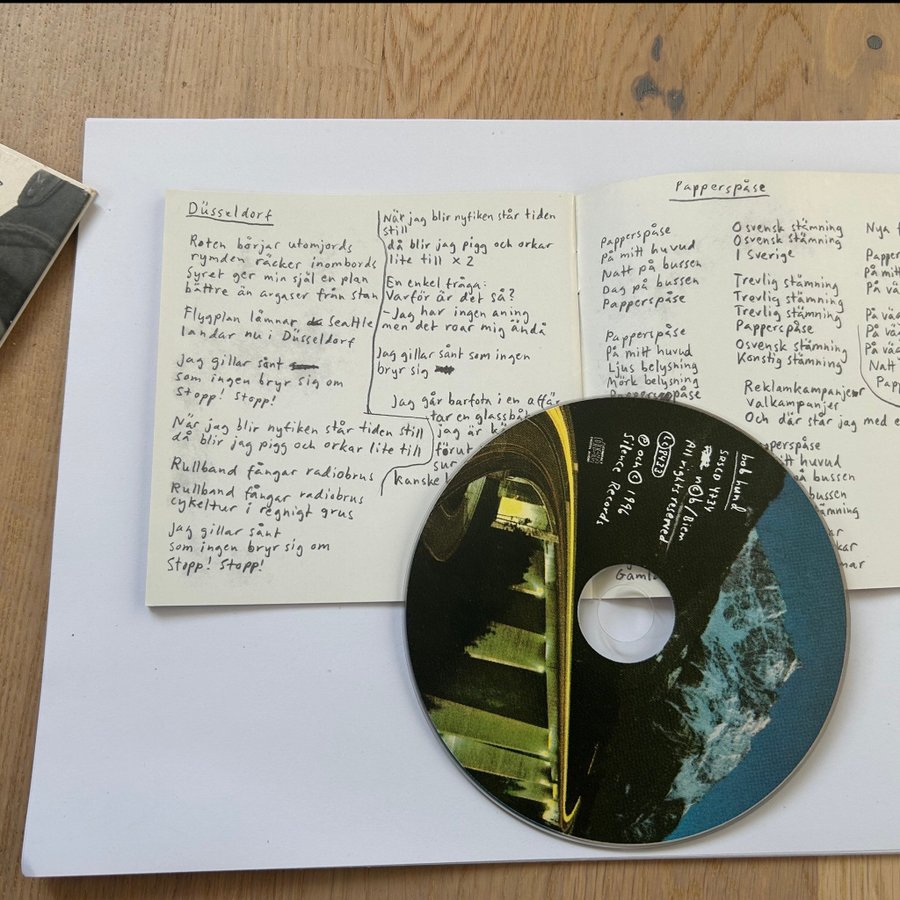 Düsseldorf
Roten börjar utomjords
rymden räcker inombords
Syret ger min själ en plan
bättre än avgaser från stan
Flygplan lämnar Seattle
landar nu i Düsseldorf
Jag gillar sånt
som ingen bryr sig om
Stopp! Stopp!
När jag blir nyfiken står tiden still
då blir jag pigg och orkar lite till
Rullband fångar radiobrus
Rullband fångar radiobrus
cykeltur i regnigt grus
Jag gillar sånt
som ingen bryr sig om
Stopp! Stopp!
När jag blir nyfiken står tiden
still
då blir jag pigg och orkar
lite till x 2
En enkel fråga:
Varför är det så?
-Jag har ingen aning
men det roar mig ändå
Jag gillar sånt som ingen
bryr sig
Jag går barfota i en affär
tar en
jag är
förut
kanske
Papperspåse
Papperspåse
På mitt huvud
Natt på bussen
Dag på bussen
Papperspåse
Papperspåse
På mitt huvud
Ljus belysning
Mörk belysning
Papperspåse
Osvensk stämning
Osvensk stämning
I Sverige
Trevlig stämning
Trevlig stämning
Trevlig stämning
Papperspåse
Osvensk stämning
Konstig stämning
Reklamkampanjer
Valkampanjer
Och där står jag med
huvud
på bussen
bussen
Nya
På
På
Natt
bob hund
SRSCD 4734
n©b/Biem
All rights reserved
LC 8423
℗ och © 1996
Silence Records
COMPACT
disc
DIGITAL AUDIO